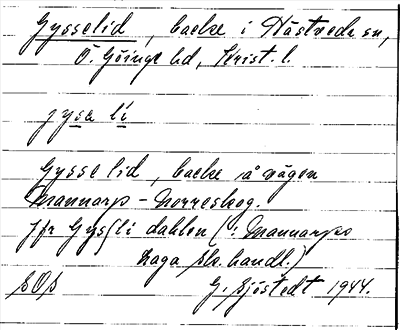 Gysselid, backe i Hästveda sn,
Ö. Göinge hd, Krist. l.
jysa li
Gysse lid, backe å vägen
Mannarp - Norreskog.
Jfr Gyssli dahlen (: Mannarps
laga sk. handl.)
SOS
G. Sjöstedt 1944.